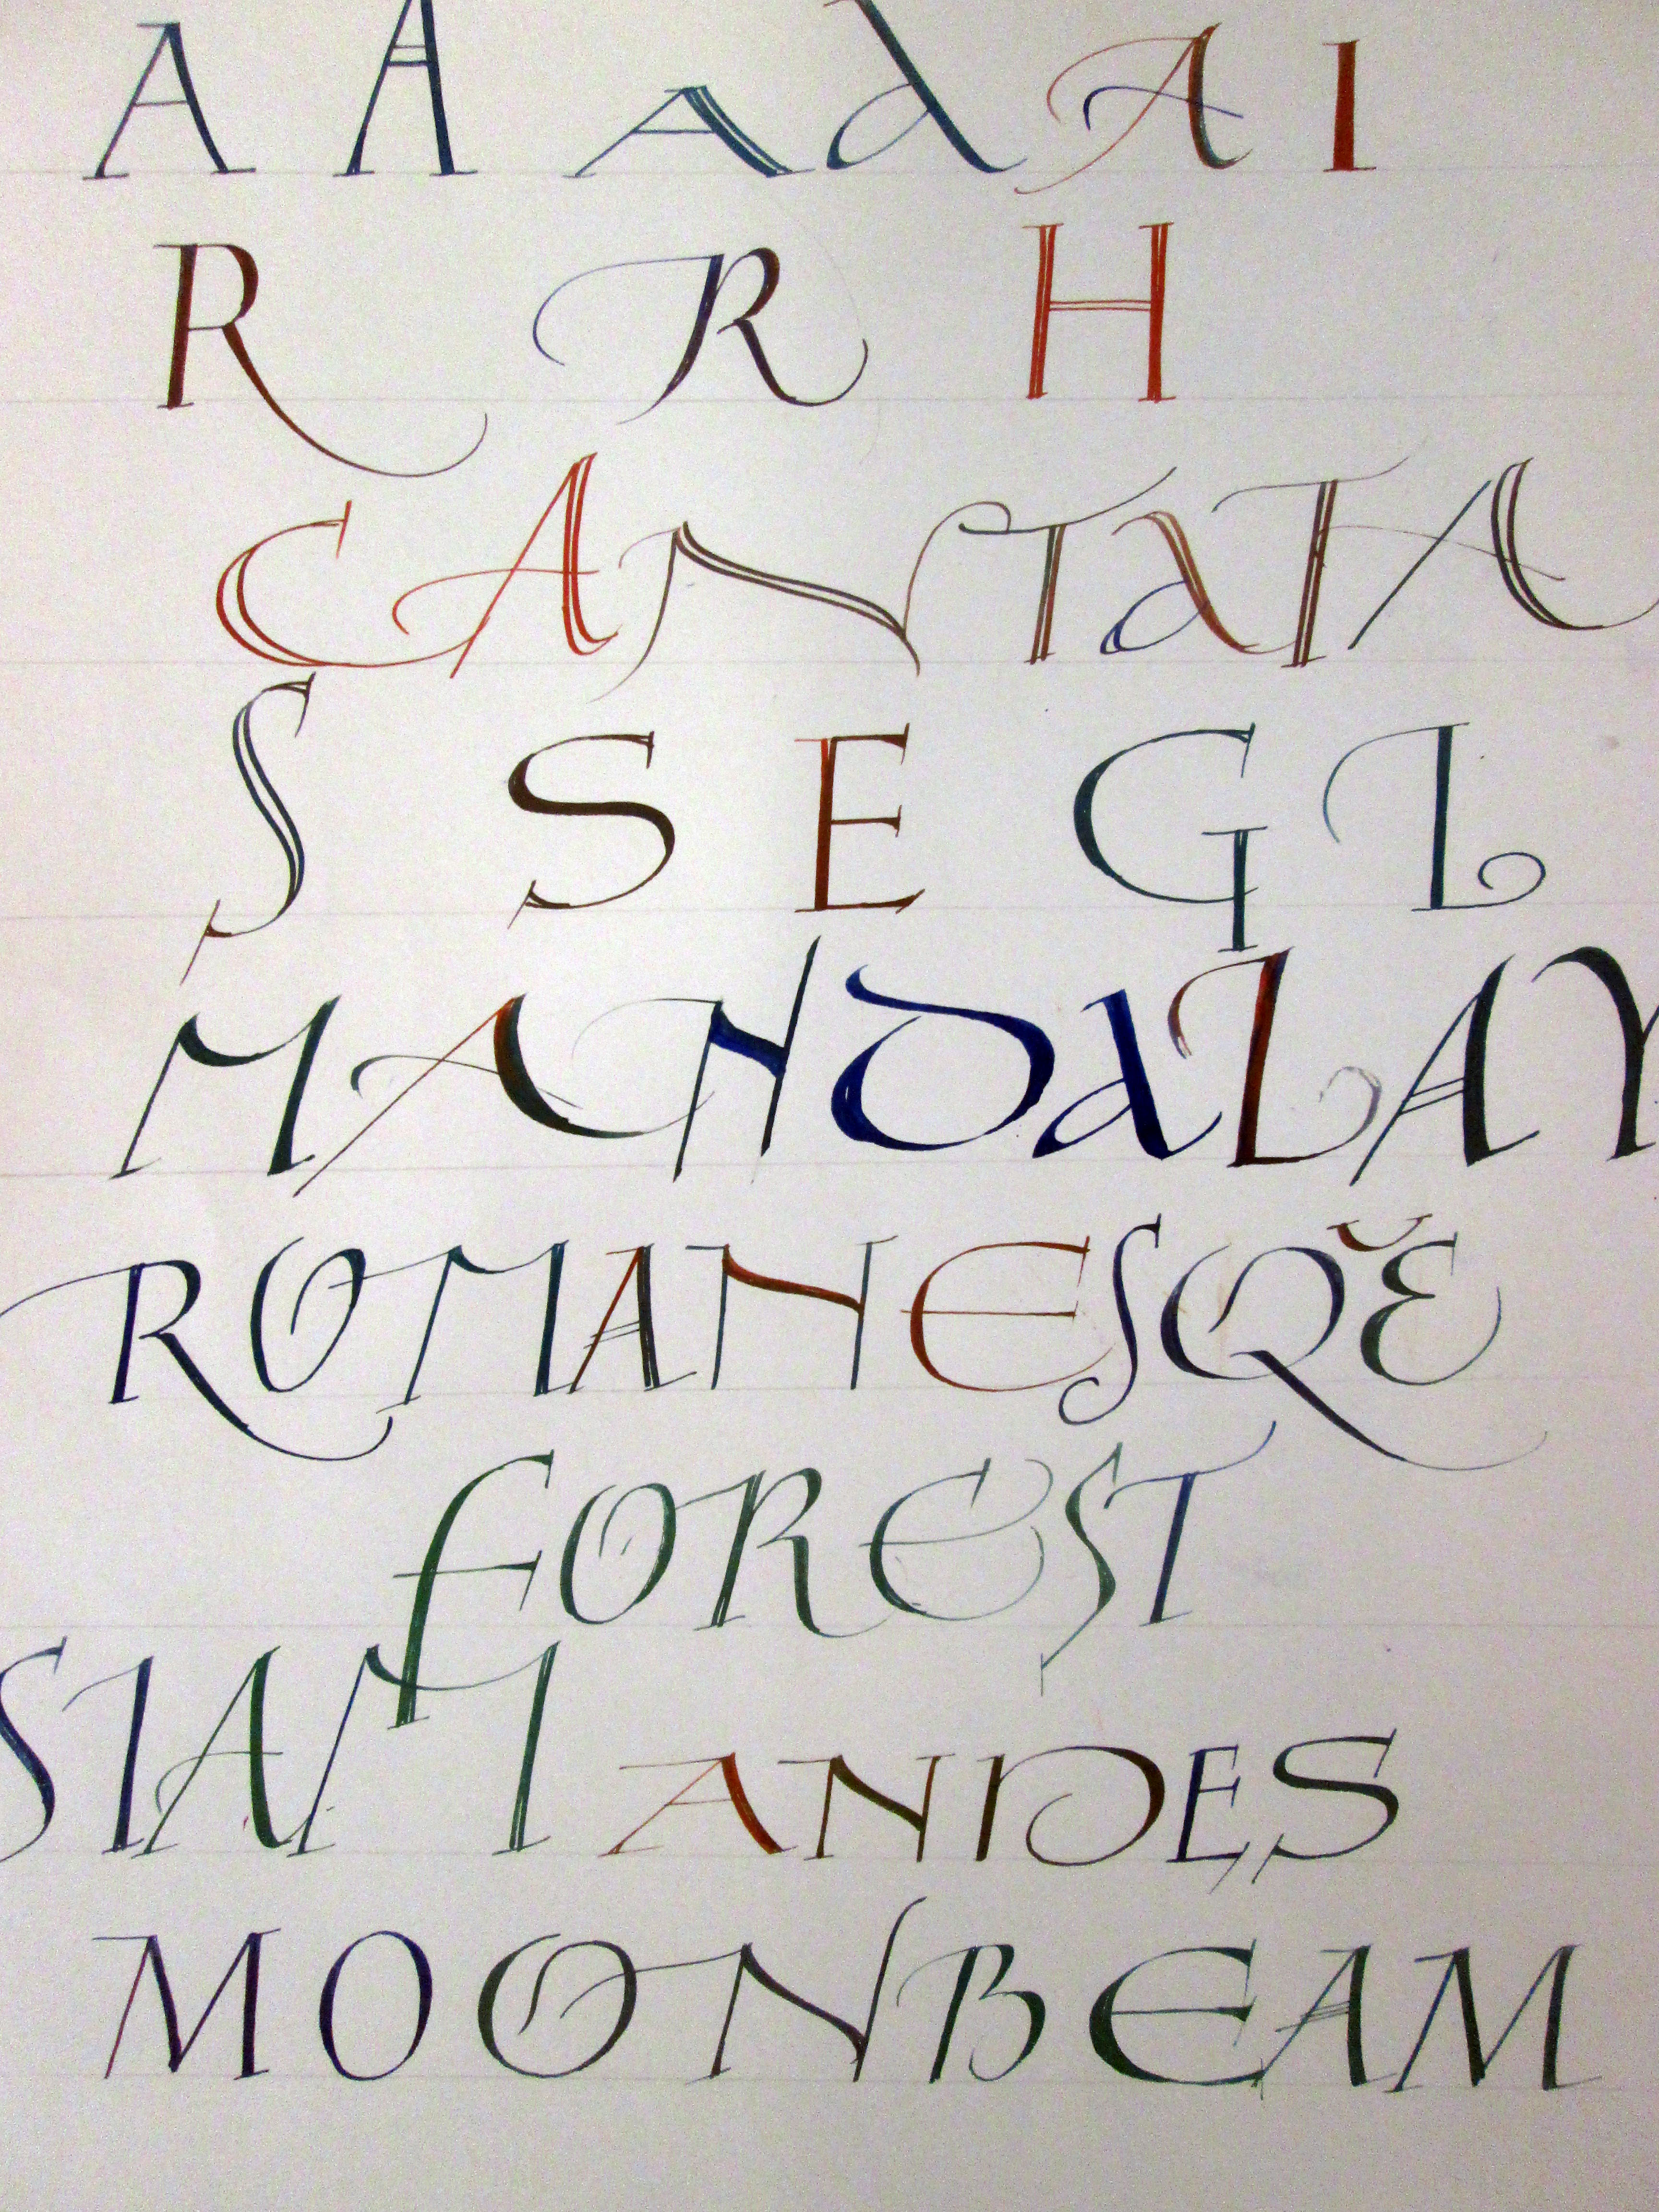 A A A a A I
R R H
CANTaTA
S S E G L
MANDaLAY
ROMANESQĔ
FOREST
SIAM ANDES
MOONBEAM